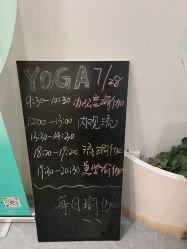 YOGA 7/28
9:30-10:30 办公室瑜伽
12:00-13:00 内观流
13:30-14:30
18:20-19:20 流瑜伽
19:30-20:30
每日瑜伽